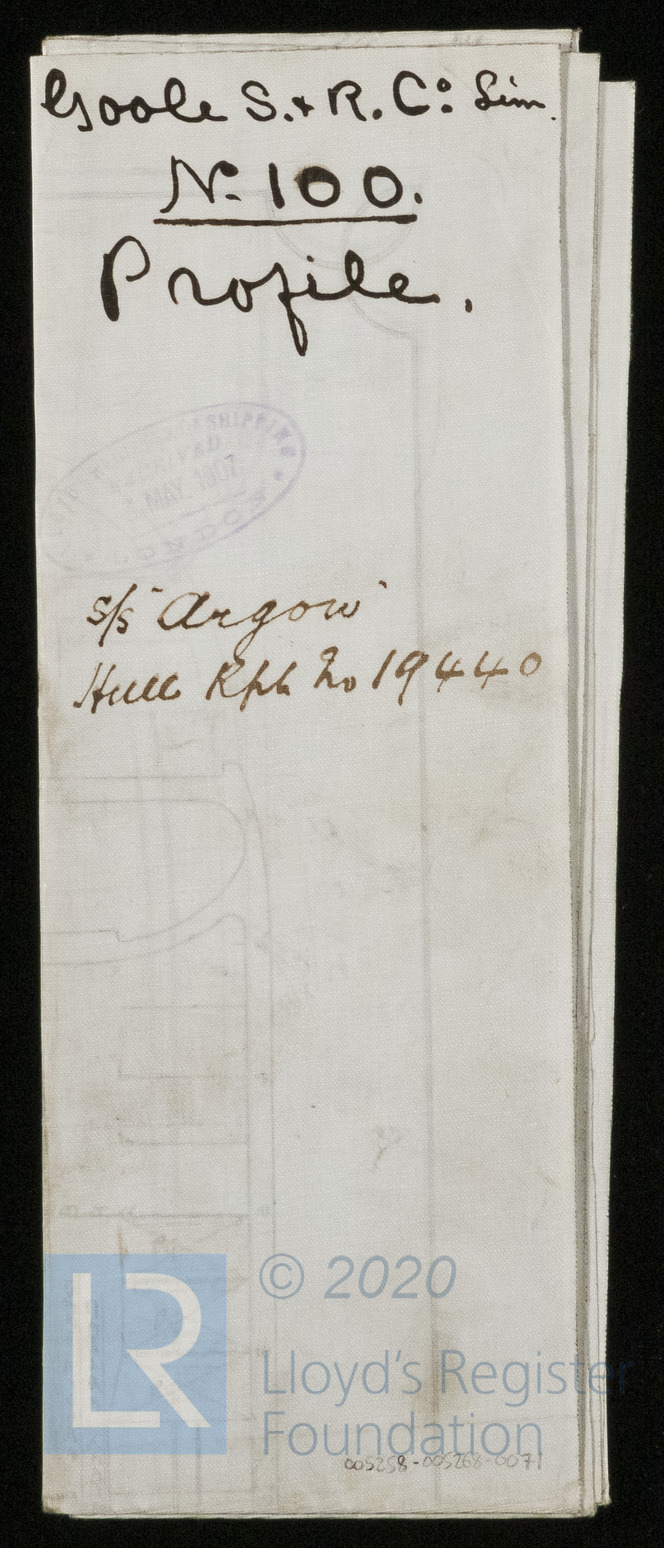 Goole S. & R. Co. Lim.
No. 100.
Profile.
SHIPPING
RECEIVED
MAY. 1907
LONDON
s/s "Argow"
Hull Rpt No 19440
LR
© 2020
Lloyd's Register
Foundation
005258-005268-0071